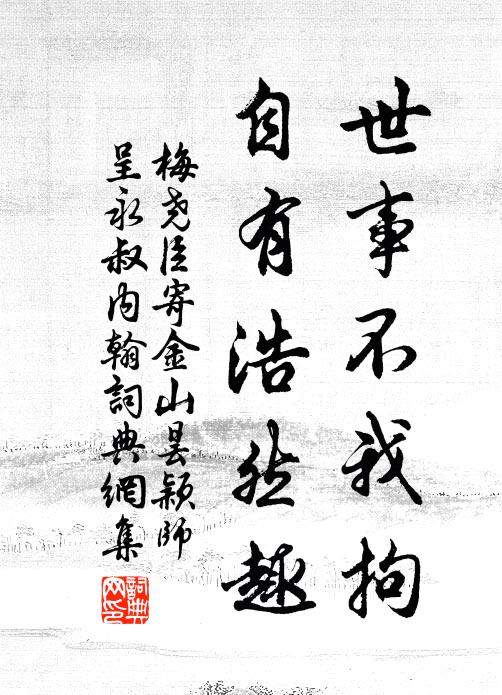 世事不我拘
自有浩然趣
梅尧臣寄金山昙颖师
呈永叔内翰詞典網集
詞典網印